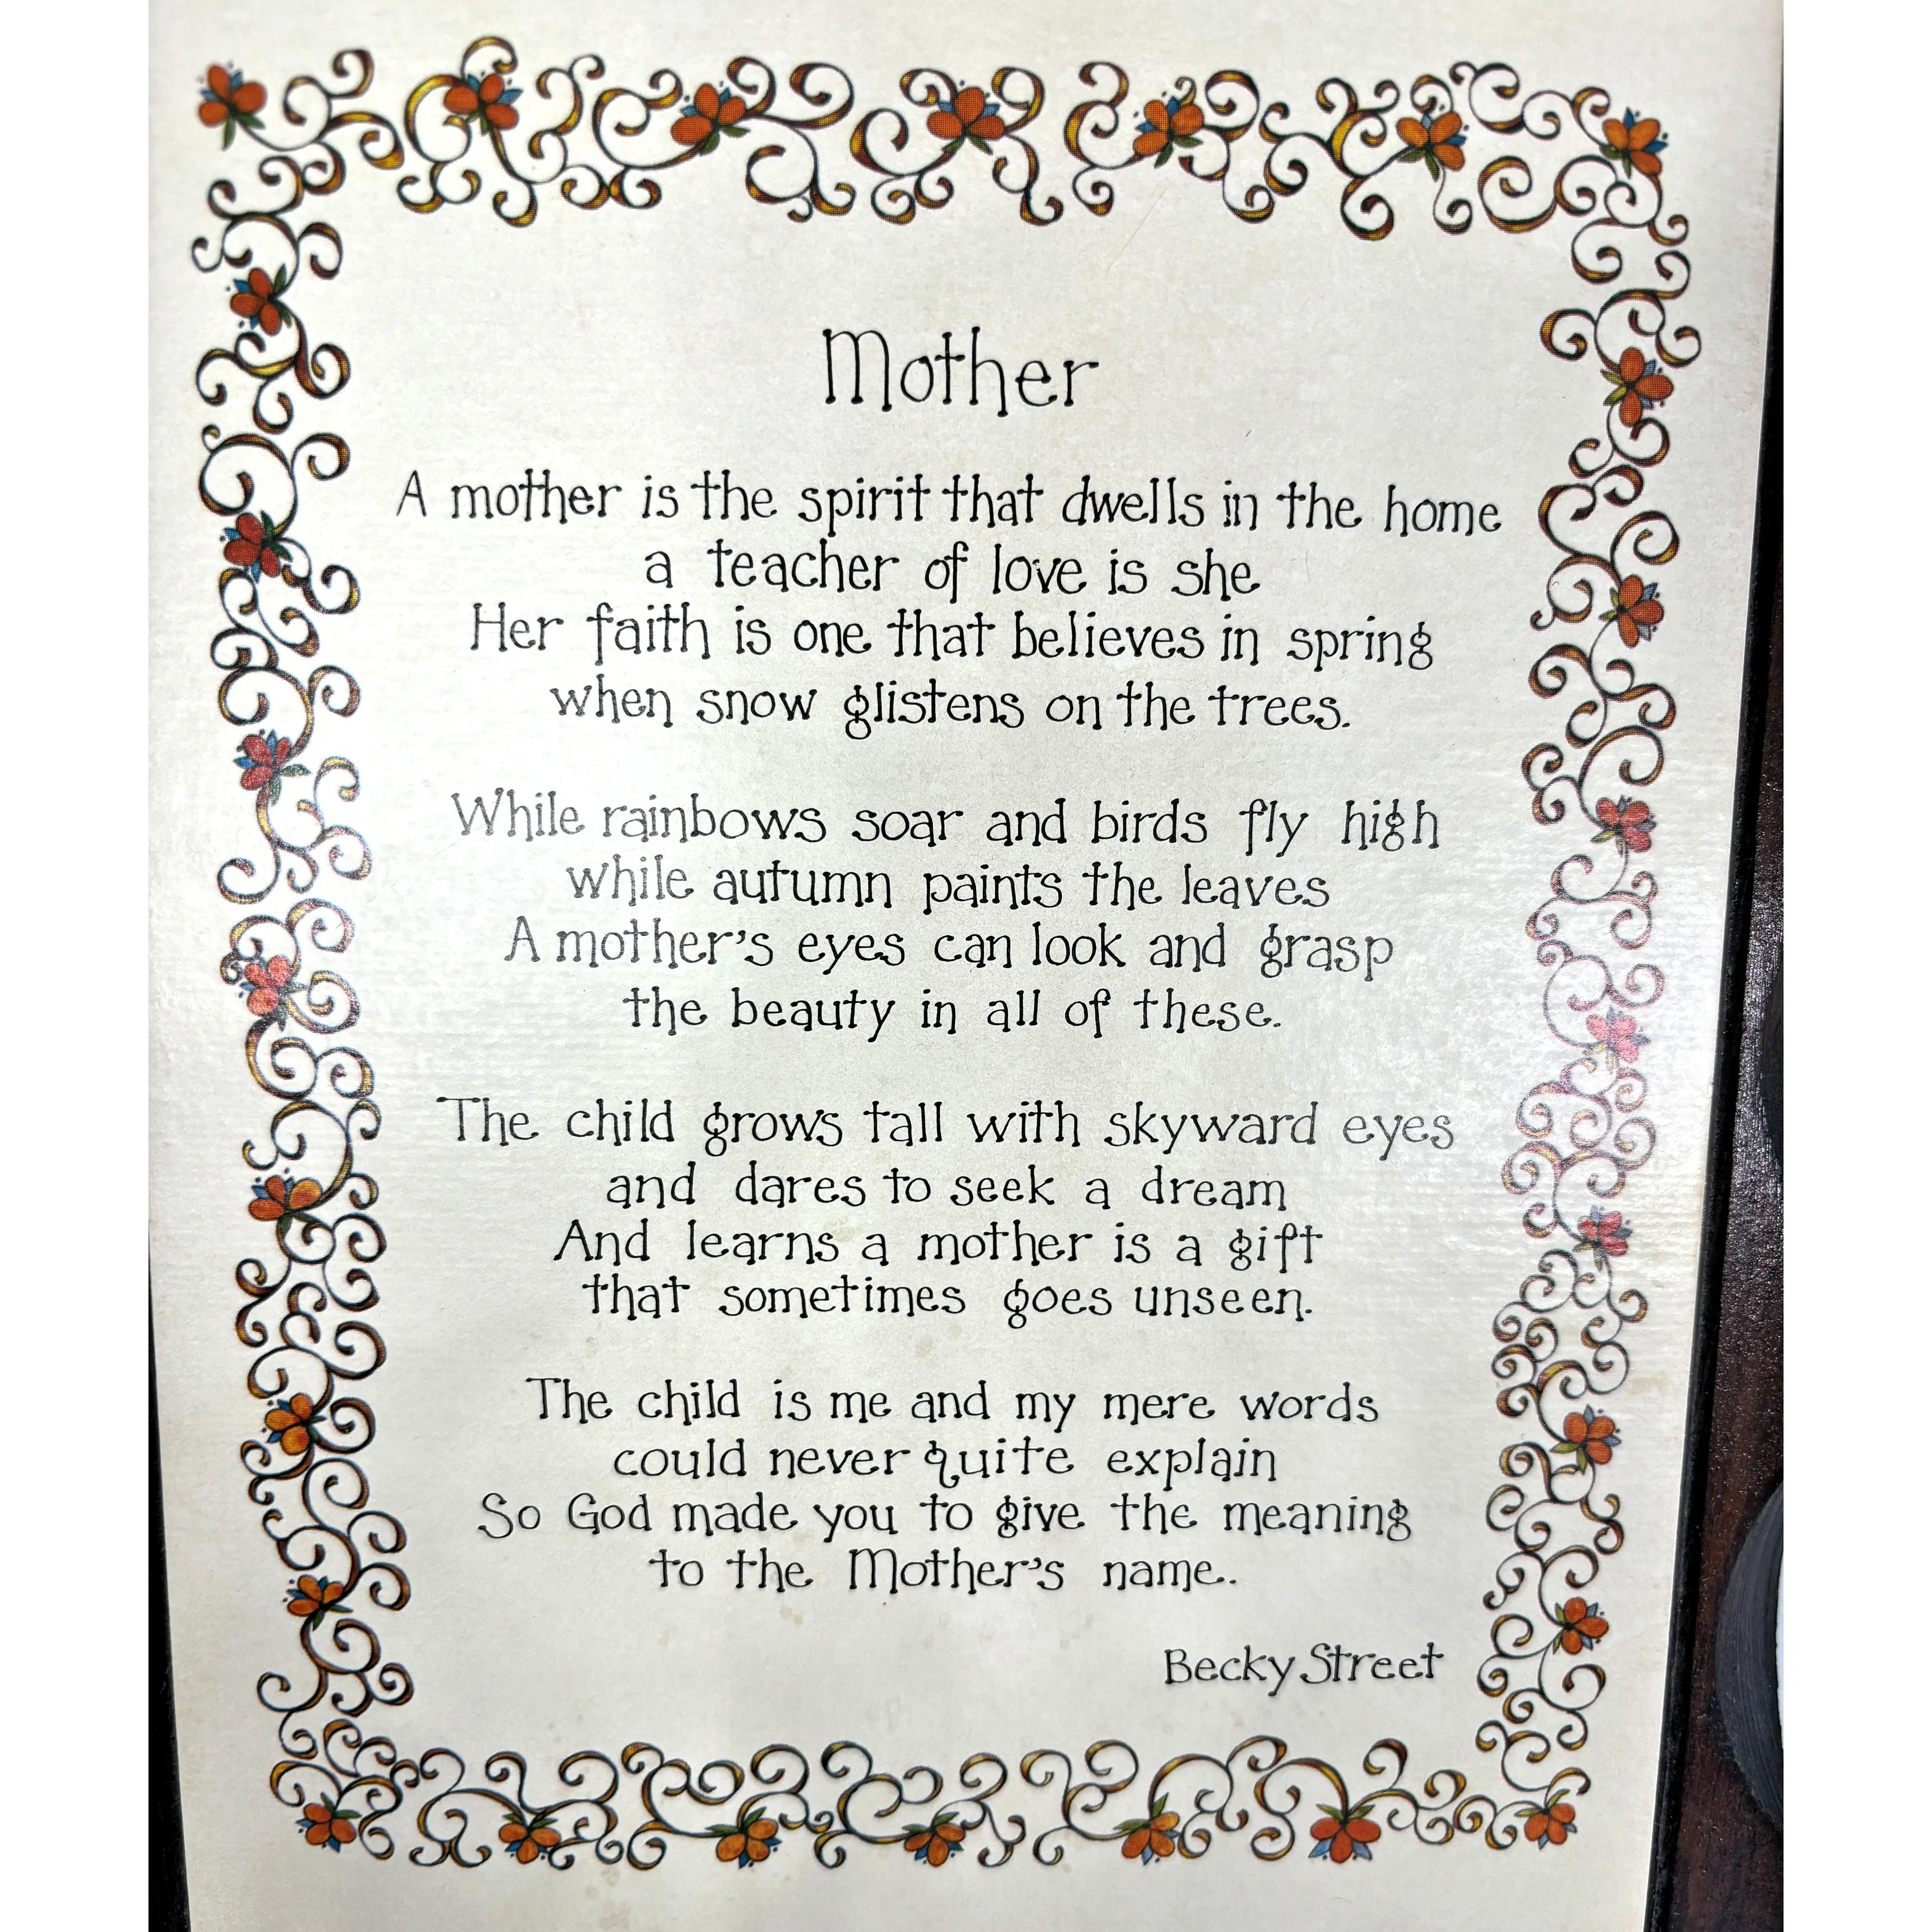 Mother
A mother is the spirit that dwells in the home
a teacher of love is she
Her faith is one that believes in spring
when snow glistens on the trees.
While rainbows soar and birds fly high
while autumn paints the leaves
A mother's eyes can look and grasp
the beauty in all of these.
The child grows tall with skyward eyes
and dares to seek a dream
And learns a mother is a gift
that sometimes goes unseen.
The child is me and my mere words
could never quite explain
So God made you to give the meaning
to the Mother's name.
Becky Street